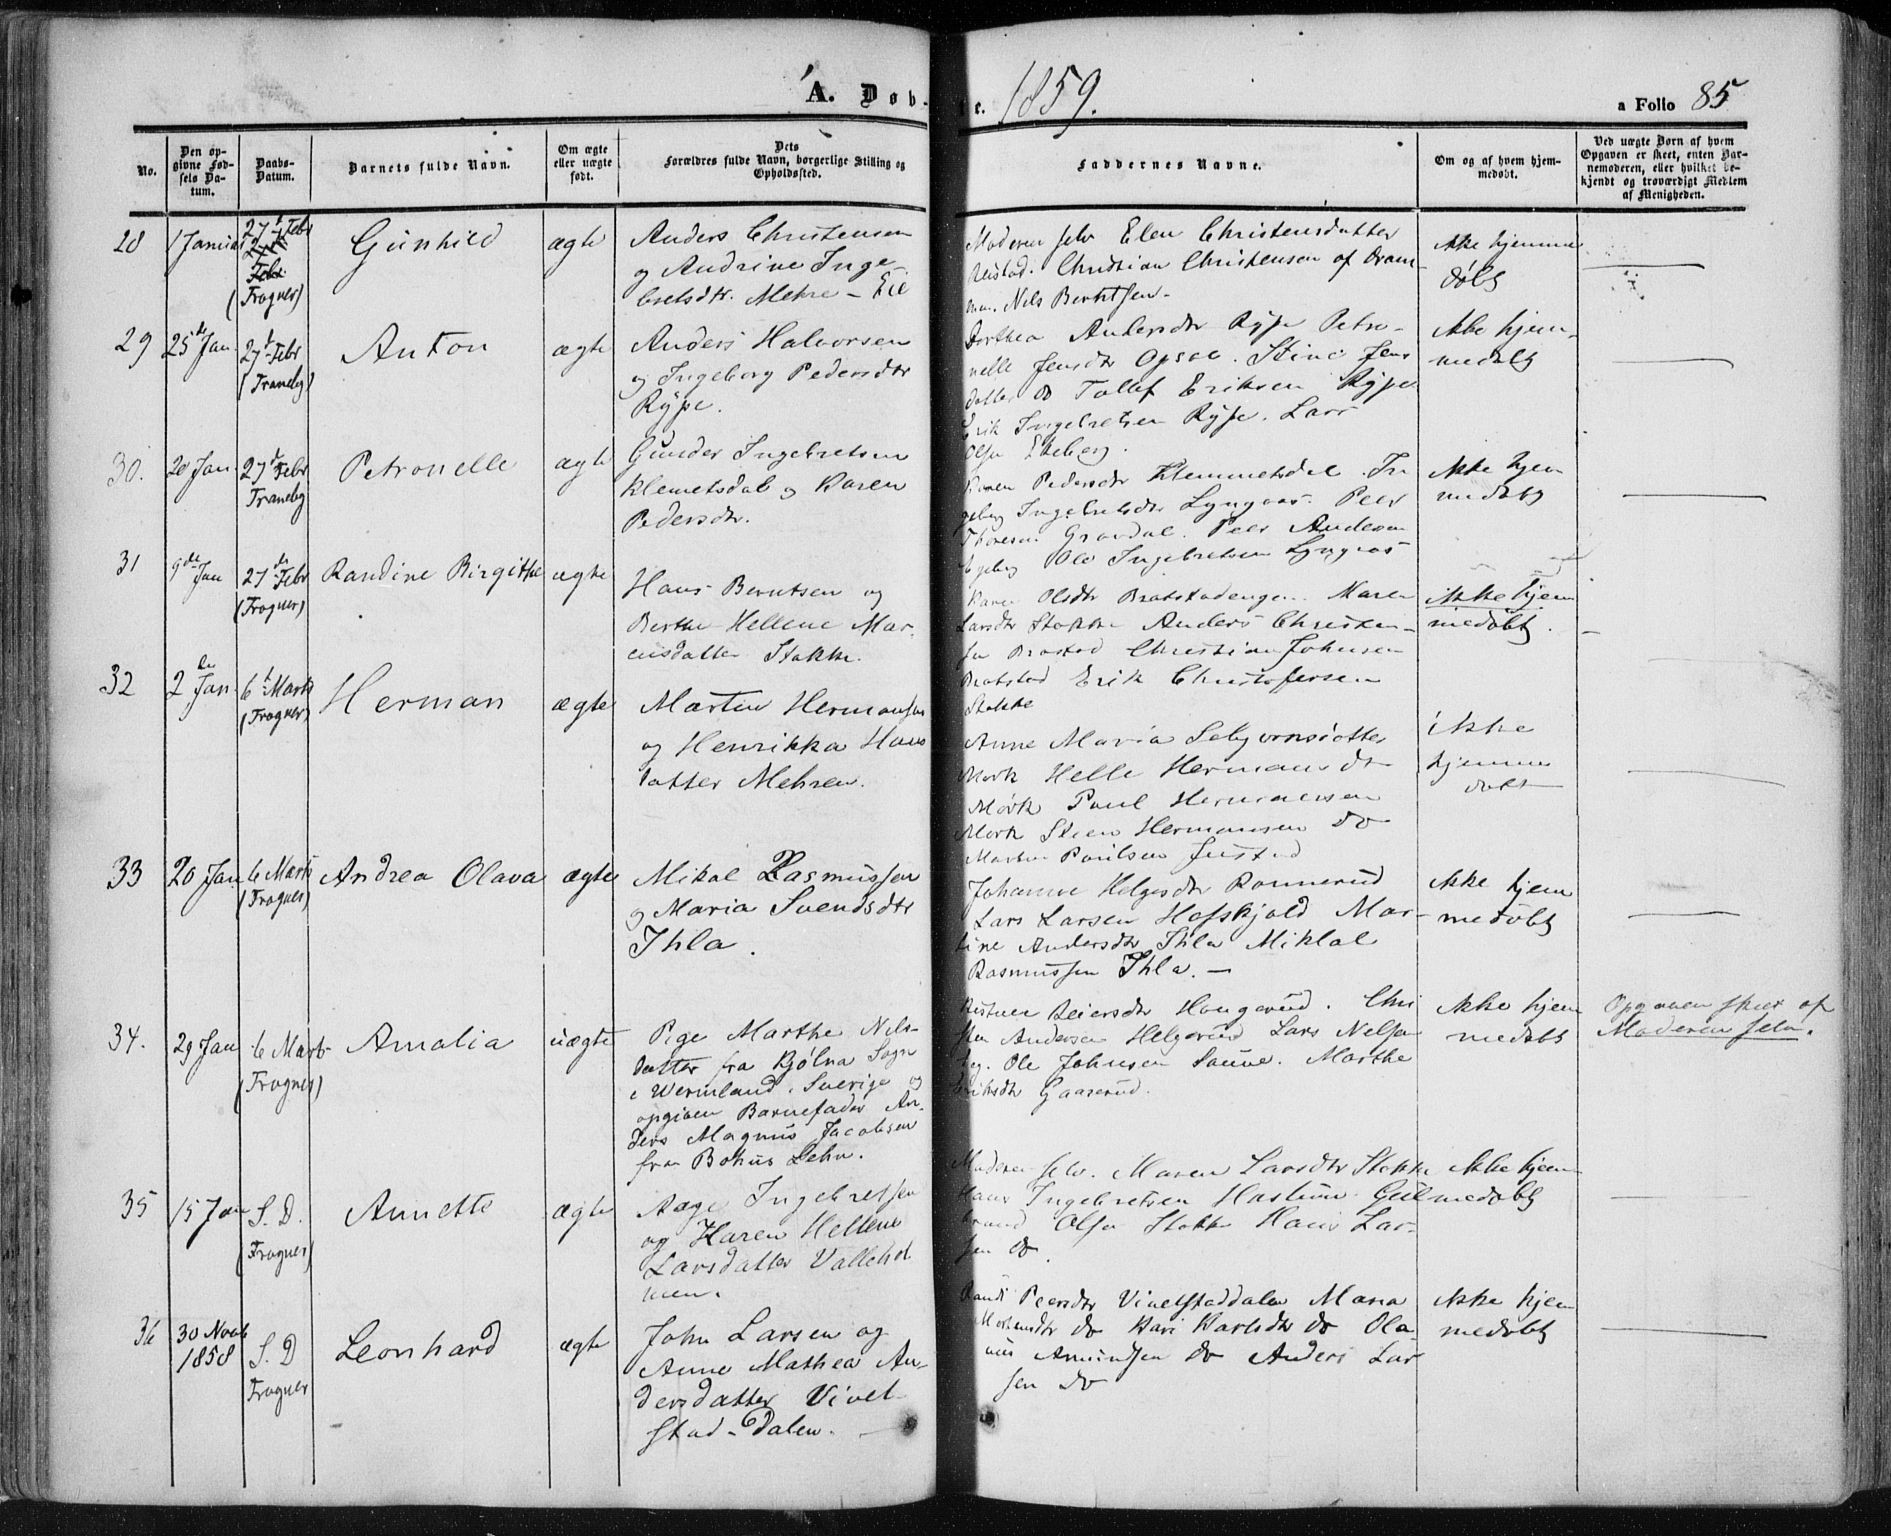 A. Døb-
te. 1859.
a Folio 85
No.
Den op-
givne Fød-
sels Da-
tum.
Daabs-
Datum.
Barnets fulde Navn.
Om ægte
eller uægte
født.
Dets
Forældres fulde Navn, borgerlige Stilling og
Opholdssted.
Faddernes Navne.
Om og af hvem hjem-
medøbt.
Ved uægte Børn af hvem
Opgaven er skeet, enten Bar-
nemoderen, eller hvilket be-
kjendt og troværdigt Medlem
af Menigheden.
28
1 Januar
27 Febr
Febr
(Frogner)
Gunhild
ægte
Anders Christensen
og Andrine Inge
bretsdtr. Mehre - Eie
Moderen selv Elen Christensdatter
Reistad. Christian Christensen af Dram
men. Nils Berntsen.
Ikke hjemme
døbt
29
25de Jan.
27 Febr
(Traneby)
Anton
ægte
Anders Halvorsen
og Ingeborg Pedersdtr
Rype.
Dorthea Andersdtr Rype Petro-
nelle Jensdtr Opsal. Stine Jens
datter do Tollef Eriksen Rype
Erik Ingebretsen Rype. Lars
Olsen Ekeberg.
Ikke hjem-
medøbt
30.
20 Jan.
27 Febr
Traneby
Petronelle
ægte
Gunder Ingebretsen
Klemetsdal og Karen
Pedersdtr.
Karen Pedersdtr Klemmetsdal. In
geborg Ingebretsdtr Lyngaas. Peer
Thoresen Gravdal. Peer Andersen
Ole Ingebretsen Lyngaas
Ikke hjem
medøbt
31
9de Jan
27 Febr
(Frogner)
Randine Birgitte
ægte
Hans Berntsen og
Berthe Hellene Mar-
cusdatter Stokke.
Karen Olsdtr Bratstadengen. Maren
Larsdtr Stokke Anders Christen-
sen Brastad Christian Johnsen
Bratstad Erik Christofersen
Stokke
ikke hjem
medøbt.
32
2 Jan.
6 Marts
(Frogner)
Herman
ægte
Martin Hermansen
og Henrikka Hans
datter Mehren.
Anne Maria
Mørk Helle Hermansdtr
Mørk Paul Hermansen
Mørk Steen Hermansen do
Martin Paulsen Justad
ikke
hjemme
døbt
33
20 Jan
6 Marts
(Frogner)
Andrea Olava
ægte
Mikal Rasmussen
og Maria Svendsdtr
Ihla.
Johanne Helgesdtr Rønnerud
Lars Larsen Hofskjold Mar-
tine Andersdtr Ihla Miklal
Rasmussen Ihla.
ikke hjem
medøbt
34.
29 Jan
6 Mart
(Frogner)
Amalia
uægte
Pige Marthe Nils-
datter fra Kjølna Sogn
i Wermland. Sverige og
opgiven Barnefader An-
ders Magnus Jacobsen
fra Bohus Lehn.
Reiersdtr Haugerud. Chri
sten Andersen Helgerud Lars Nelsen
Ole Johnsen Sauve. Marthe
Eriksdtr Gaaserud.
ikke hjem
medøbt
Opgaven skeer af
Moderen selv.
35
15 Jan
S. D.
(Frogner)
Annette
ægte
Aage Ingebretsen
og Karen Hellene
Larsdatter Vallehol
men.
Moderen selv. Maren Larsdtr Stokke
Hans Ingebretsen Haslum. Gul
brand Olsen Stokke Hans Lar-
sen do
ikke hjem
medøbt
36
30 Novb
1858
S. D
Frogner
Leonhard
ægte
John Larsen og
Anne Mathea An-
dersdatter Vivel-
stad-Dalen.
Randi Peersdtr Vivelstaddalen Maria
Mortensdtr do Kari Karlsdtr do Ola-
us Amundsen do Anders Lar
sen do
ikke hjem
medøbt